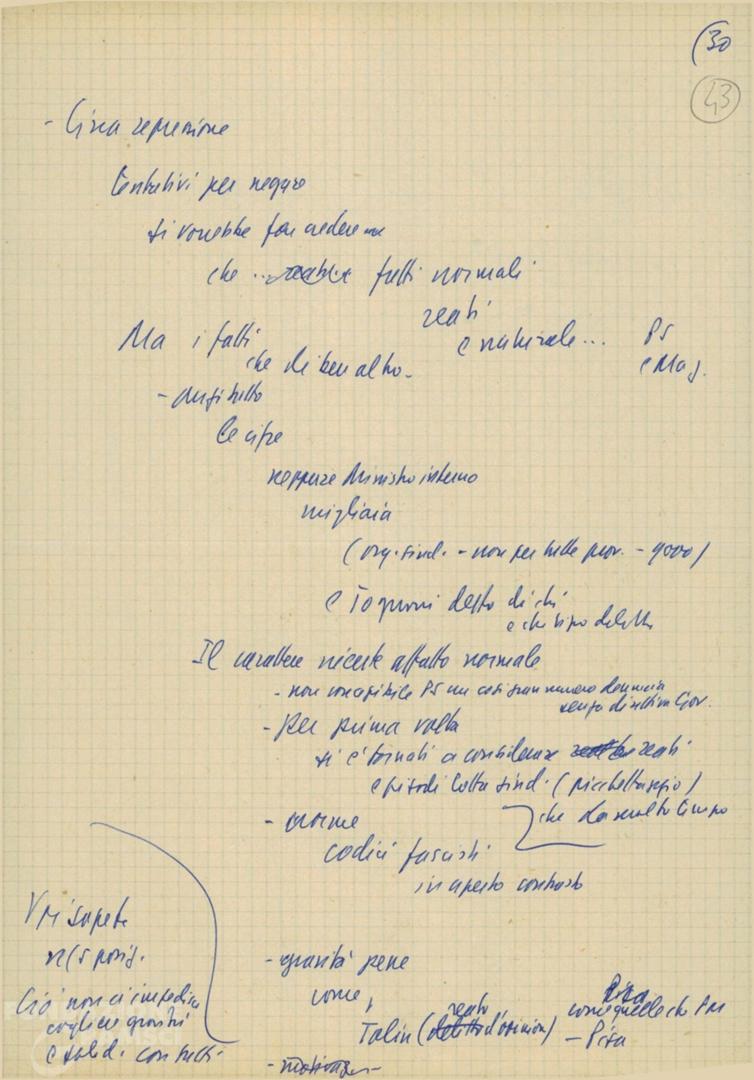 (30
43
- Circa repressione
tentativi per negare
si vorrebbe far credere
che ... fatti normali
reati
è naturale... PS
e Mag.
Ma i fatti
che di ben altro -
- anzitutto
le cifre
neppure Ministro interno
migliaia
(org. sind. - non per tutte prov. - 9000)
e Io
detto di chi
e che tipo
Il carattere niente affatto normale
- non concepibile PS un così gran numero denuncia
senza direttiva Gov.
- per prima volta
si è tornati a considerare reati
episodi lotta sind. (picchettaggio)
che da molto tempo
- norme
codici fascisti
in aperto contrasto
Voi sapete
ns/ posiz.
Ciò non ci impedisce
cogliere gravità
e solid. con tutti
- gravità pene
come,
Tolin (reato d'opinion) come quelle che PM
- Pisa